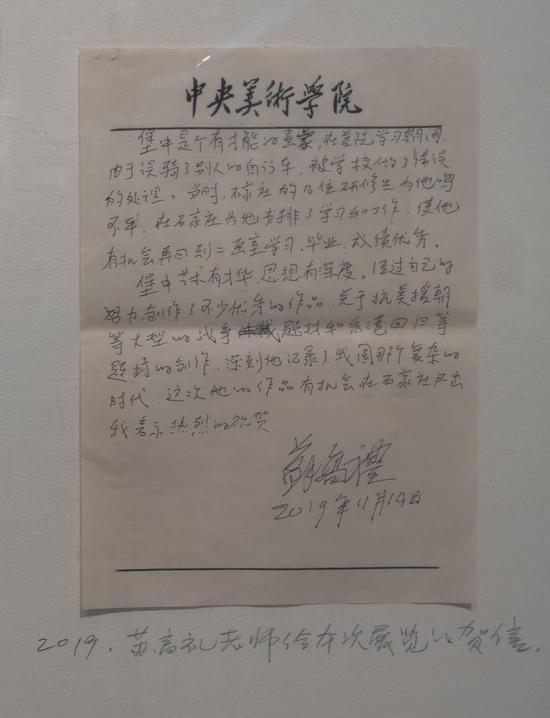 中央美術学院
堡中是个有才能的画家,在美院学习期间
由于误骑了别人的自行车,被学校做了错误
的处理。当时,石家庄的几位研修生为他鸣
不平,在石家庄为他安排了学习和工作,使他
有机会再回到二画室学习、毕业、成绩优秀。
堡中艺术有才华,思想有深度,通过自己的
努力创作了不少优秀的作品,关于抗美援朝
等大型的战争题材和香港回归等
题材的创作,深刻地记录了我国那个复杂的
时代,这次他的作品有机会在石家庄展出
我表示热烈的祝贺
苏高禮
2019年11月14日
2019.苏高礼老师给本次展览的贺信.